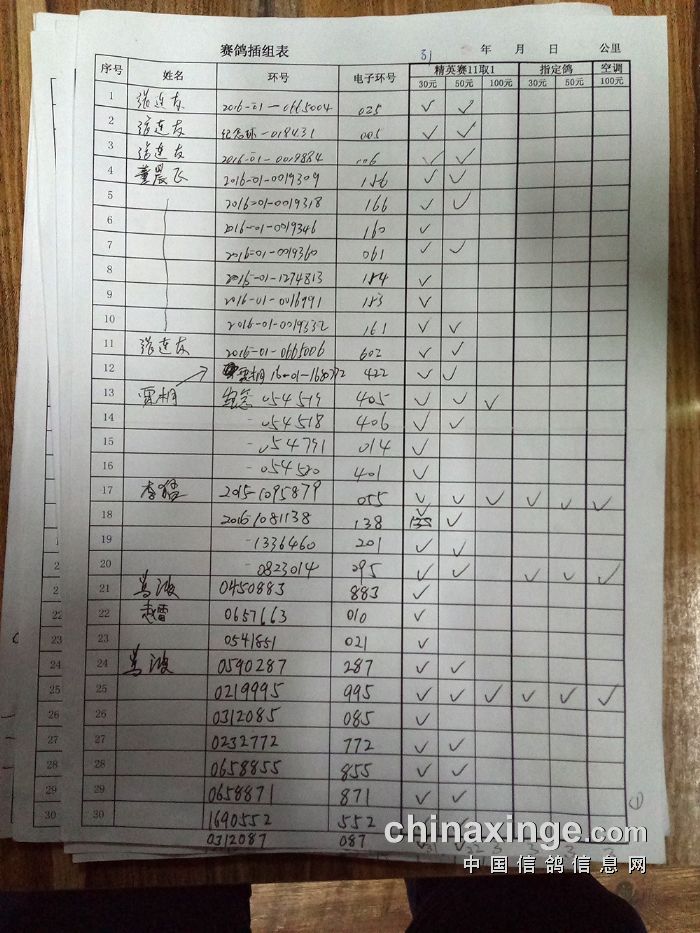 赛鸽插组表
31 年 月 日 公里
序号 姓名 环号 电子环号 精英赛11取1 指定鸽 空调
30元 50元 100元 30元 50元 100元
1 张连友 2016-01-0665004 025 ✓ ✓
2 张连友 纪念环-019431 005 ✓ ✓
3 张连友 2016-01-0019884 006 ✓ ✓
4 董晨飞 2016-01-0019309 186 ✓ ✓
5 2016-01-0019318 166 ✓ ✓
6 2016-01-0019346 160 ✓
7 2016-01-0019360 061 ✓ ✓
8 2015-01-1274813 184 ✓
9 2016-01-0016991 183 ✓
10 2016-01-0019332 161 ✓ ✓
11 张连友 2016-01-0665006 602 ✓ ✓
12 雷相 16-01-1680772 422 ✓ ✓
13 雷相 纪念 054519 405 ✓ ✓ ✓
14 - 054518 406 ✓ ✓
15 - 054791 014 ✓
16 - 054520 401 ✓
17 李 2015-1095879 055 ✓ ✓ ✓ ✓ ✓ ✓
18 2016-1081138 138 ✓ ✓
19 - 1336460 201 ✓ ✓
20 - 0823014 095 ✓ ✓ ✓ ✓ ✓
21 0450883 883 ✓
22 赵雷 0657663 010 ✓
23 0541851 021 ✓
24 0590287 287 ✓ ✓
25 0219995 995 ✓ ✓ ✓ ✓ ✓ ✓
26 0312085 085 ✓
27 0232772 772 ✓ ✓
28 0658855 855 ✓ ✓
29 0658871 871 ✓ ✓
30 1690552 552
0312087 087
chinaxinge.com
中国信鸽信息网